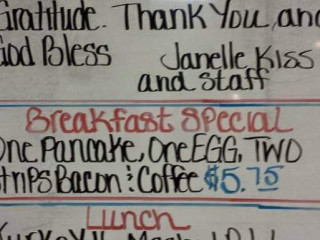 Gratitude. Thank You, and
God Bless Janelle Kiss
and Staff
Breakfast Special
One Pancake, One EGG, TWO
Strips Bacon & Coffee $5.75
Lunch